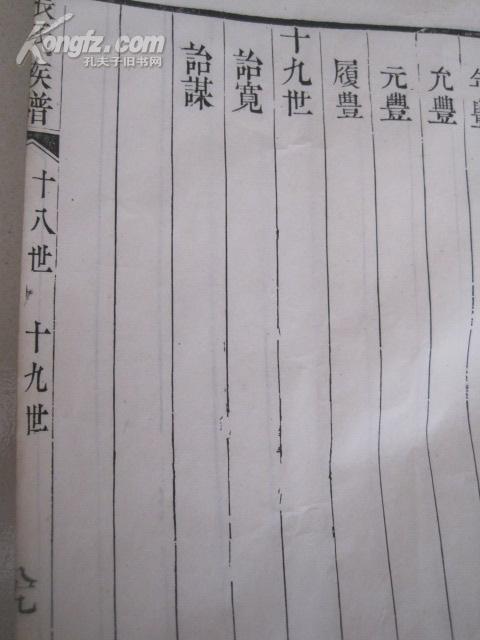 允豐
元豐
履豐
十九世
詒寬
詒謀
族譜
十八世 十九世
Kongfz.com
孔夫子旧书网